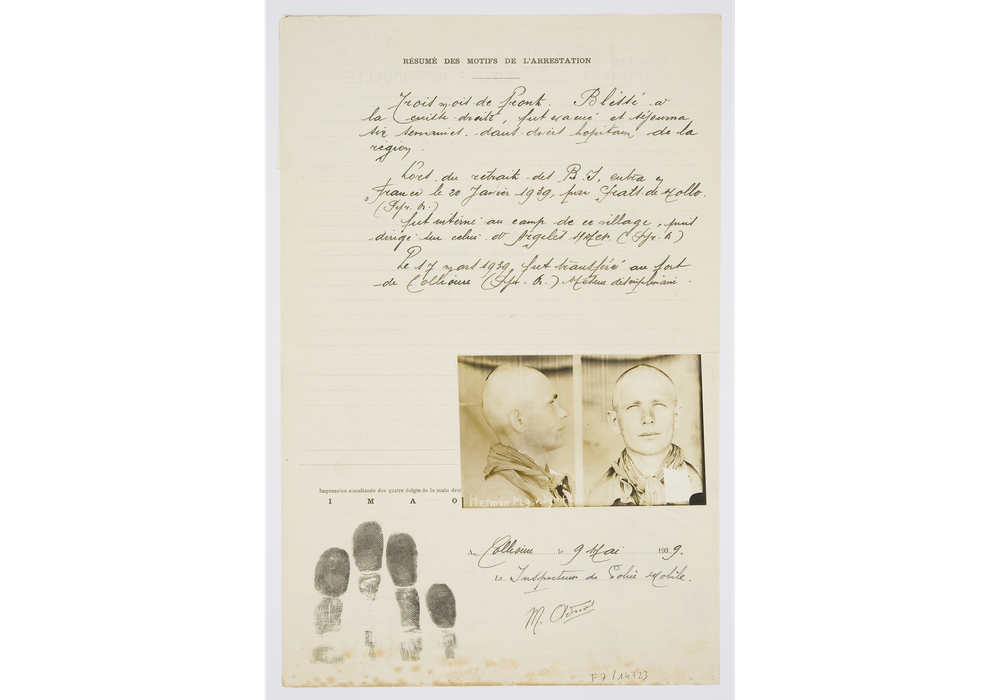 RÉSUMÉ DES MOTIFS DE L'ARRESTATION
Trois mois de front. Blessé a
la cuisse droite, fut evacué et séjourna
six semaines dans divers hopitaux de la
région.
Lors du retrait des B.I. entra en
France le 20 Janvier 1939, par Prats de Mollo.
(Pyr. Or.)
fut interné au camp de ce village, puis
dirigé sur celui d'Argelès s/Mer. (Pyr. Or)
Le 17 mars 1939, fut transféré au fort
de Collioure (Pyr. Or.) Mesure disciplinaire.
Impression simultanée des quatre doigts de la main
I M A O
Herman
A Collioure le 9 Mai 1939.
Le Inspecteur de Police Mobile.
M.
F7/14723